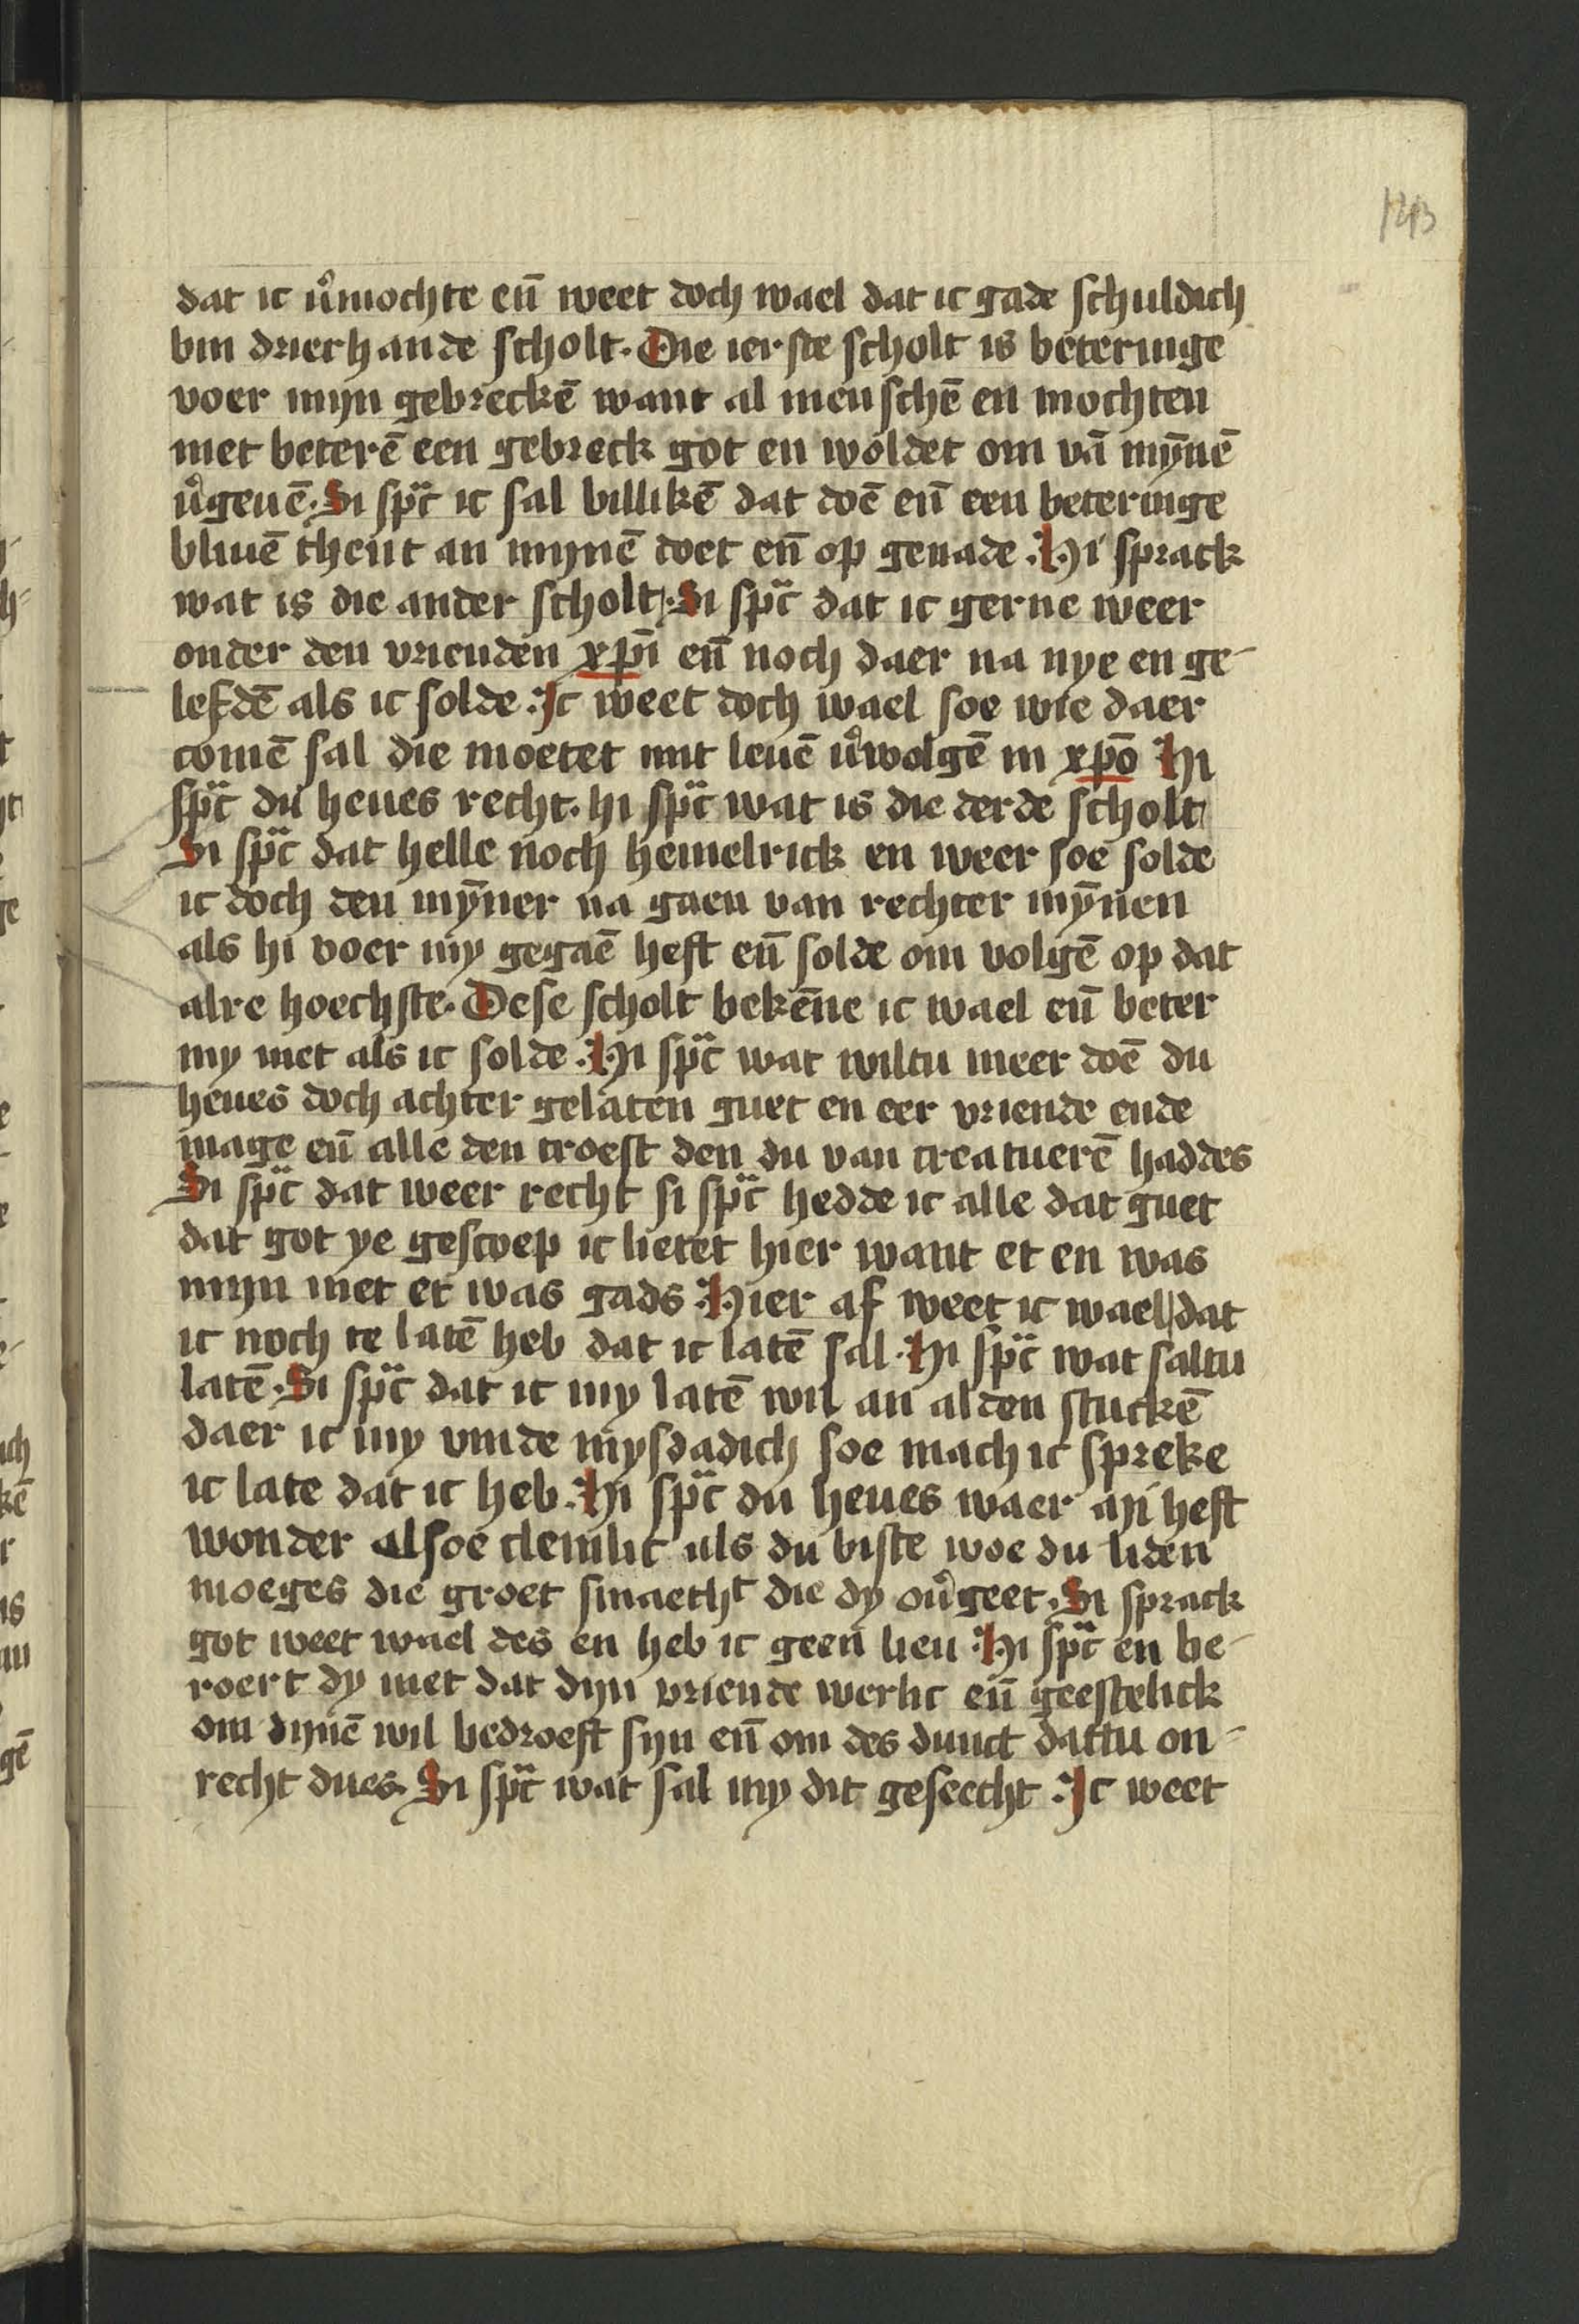 143
dat ic v͛mochte en̄ weet doch wael dat ic gade schuldich
bin drierhande scholt. Die ierste scholt is beteringe
voer mijn gebreckē want al menschē en mochten
niet beterē een gebreck got en woldet om vā mȳnē
v͛geuē. Si sp̈c ic sal billikē dat doē en̄ een beteringe
bliuē thent an mijnē doet en̄ op genade. Hi sprack
wat is die ander scholt. Si sp̈c dat ic gerne weer
onder den vrienden xp̄i en̄ noch daer na nye en ge-
lefdē als ic solde. Ic weet doch wael soe wie daer
comē sal die moetet mit leuē v͛wolgē in xp̄o Hi
sp̈c du heues recht. hi sp̈c wat is die derde scholt
Si sp̈c dat helle noch hemelrick en weer soe solde
ic doch den mȳner na gaen van rechter mȳnen
als hi voer my gegaē heft en̄ solde om volgē op dat
alre hoechste. Dese scholt bekēne ic wael en̄ beter
my niet als ic solde. Hi sp̈c wat wiltu meer doē du
heues doch achter gelaten guet en eer vriende ende
mage en̄ alle den troest den du van creatuerē haddes
Si sp̈c dat weer recht si sp̈c hedde ic alle dat guet
dat got ye gescoep ic lietet hier want et en was
mijn niet et was gads. Hier af weet ic wael dat
ic noch te latē heb dat ic latē sal. Hi sp̈c wat saltu
latē. Si sp̈c dat ic my latē wil an al den stuckē
daer ic my vinde mysdadich soe mach ic spreke
ic late dat ic heb. Hi sp̈c du heues waer mi heft
wonder alsoe clemlic als du biste woe du liden
moeges die groet smaetht die dy ou͛geet. Si sprack
got weet wael des en heb ic geen lien. Hi sp̈c en be-
roert dy niet dat dijn vriende werlic en̄ geestelick
om dijnē wil bedroeft sijn en̄ om des dunct dattu on-
recht dues. Si sp̈c wat sal my dit geseecht. Ic weet